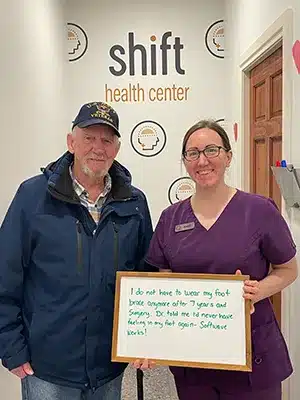 shift
health center
VETERAN
I do not have to wear my foot
brace anymore after 7 years and
Surgery. Dr. told me I'd never have
feeling in my foot again- Softwave
Works!